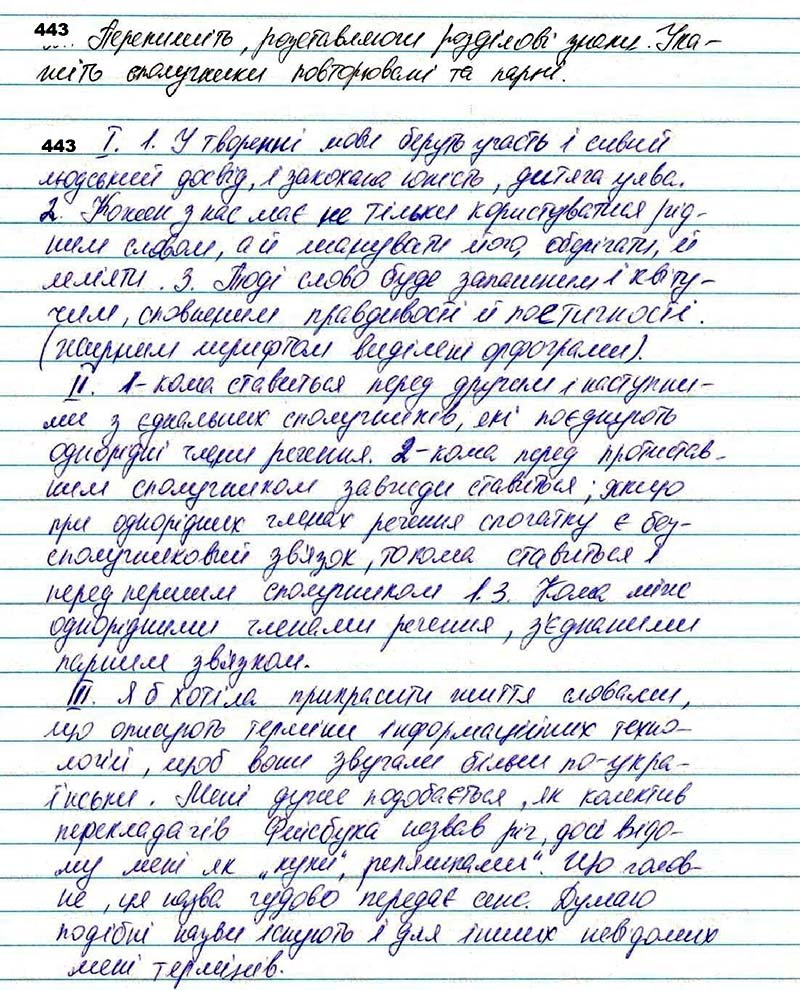 443
... Перепишіть, розставляючи розділові знаки. Ука-
жіть сполучники повторювані та парні.
443 I. 1. У творенні мови беруть участь і сивий
людський досвід, і закохана юність, дитяча уява.
2. Кожен з нас має не тільки користуватися рід-
ним словом, а й шанувати його, оберігати, й
леліяти. 3. Тоді слово буде запашним і квіту-
чим, сповненим правдивості й поетичності.
(жирним шрифтом виділені орфограми).
II. 1-кома ставиться перед другим і наступни-
ми з єднальних сполучників, які поєднують
однорідні члени речення. 2-кома перед протистав-
ним сполучником завжди ставиться; якщо
при однорідних членах речення спочатку є без-
сполучниковий зв'язок, то кома ставиться і
перед першим сполучником 1.3. Кома між
однорідними членами речення, з'єднаними
парним зв'язком.
III. Я б хотіла прикрасити життя словами,
що описують терміни інформаційних техно-
логій, щоб вони звучали більш по-укра-
їнськи. Мені дуже подобається, як колектив
перекладачів Фейсбука назвав річ, досі відо-
му мені як „куки", „реп'яшками". Що голов-
не, ця назва чудово передає сенс. Думаю
подібні назви існують і для інших невідомих
мені термінів.